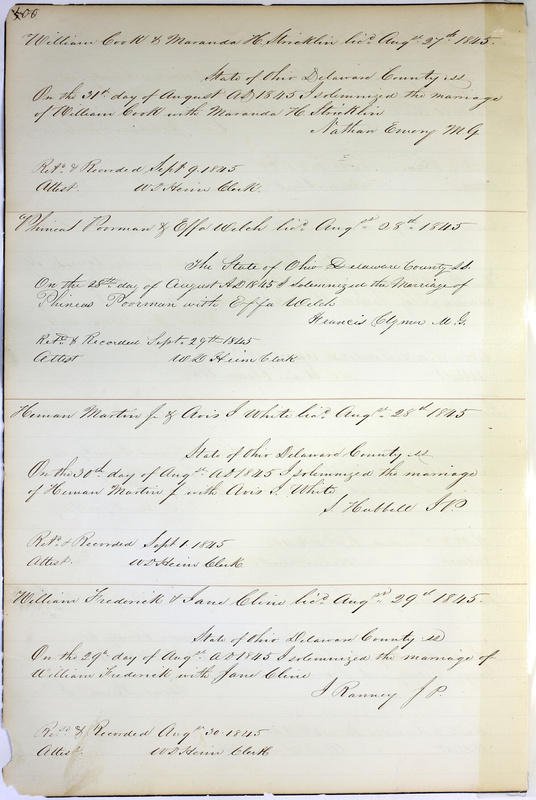 400
William Cook & Maranda H. Stricklin licd Augst 27th 1845.
State of Ohio Delaware County ss
On the 31st day of August AD 1845 I solemnized the marriage
of William Cook with Maranda H Stricklin
Nathan Emery M G
Retd & Recorded Sept 9. 1845
Attest. W D Heim Clerk.
Phineas Poorman & Effa Welch licd Augst 28th 1845
The State of Ohio Delaware County SS.
On the 28th day of August AD 1845 I solemnized the Marriage of
Phineas Poorman with Effa Welch
Francis Clymer M. G.
Retd & Recorded Sept. 29th 1845
Attest W D Heim Clerk
Heman Martin Jr & Avis S White licd Augst 28th 1845
State of Ohio Delaware County ss
On the 30th day of Augst AD 1845 I solemnized the marriage
of Heman Martin Jr with Avis S. White
S Hubbell J.P.
Retd & Recorded Sept 1. 1845
Attest. W D Heim Clerk
William Frederick & Jane Cline licd Augst 29th 1845.
State of Ohio Delaware County ss
On the 29th day of Augst AD 1845 I solemnized the marriage of
William Frederick with Jane Cline
J Ranney J P.
Retd & Recorded Augst 30. 1845
Attest. W D Heim Clerk